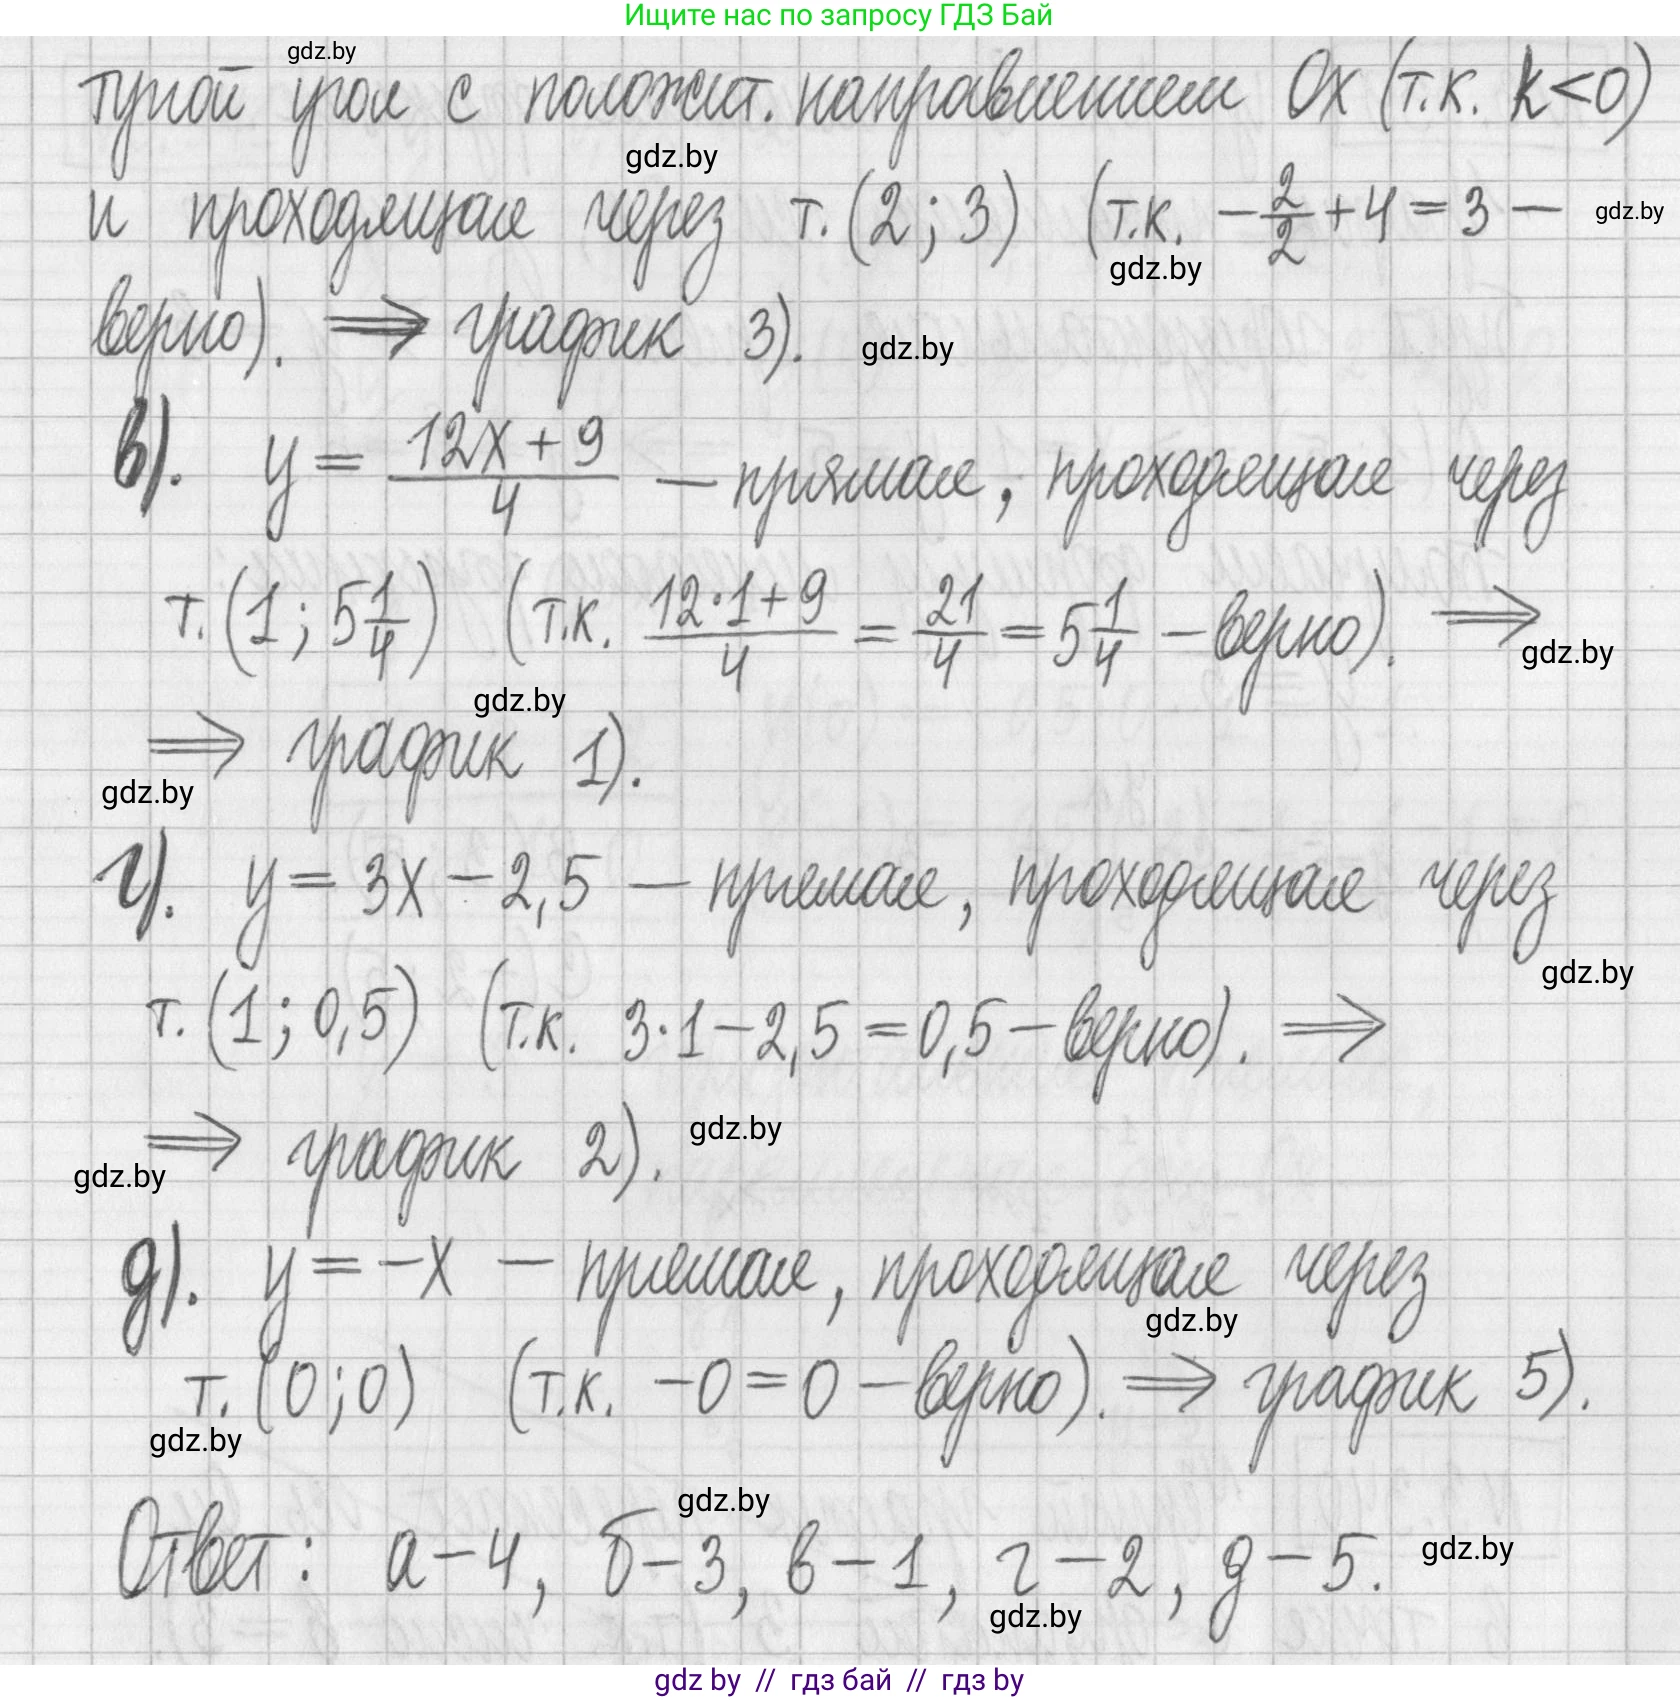 Ищите нас по запросу ГДЗ Бай
gdz.by
тупой угол с положит. направлением Ox (т.к. k<0)
gdz.by
и проходящая через т. (2; 3) (т.к. -2/2+4=3 — gdz.by
gdz.by
верно). ⇒ график 3). gdz.by
в). y = (12x+9)/4 — прямая, проходящая через
т. (1; 5 1/4) (т.к. (12·1+9)/4 = 21/4 = 5 1/4 – верно). ⇒
gdz.by
gdz.by
⇒ график 1).
gdz.by
г). y = 3x – 2,5 — прямая, проходящая через
gdz.by
т. (1; 0,5) (т.к. 3·1–2,5=0,5 – верно). ⇒
⇒ график 2). gdz.by
gdz.by
д). y = –x — прямая, проходящая через
gdz.by
т. (0;0) (т.к. –0=0 – верно). ⇒ график 5).
gdz.by
gdz.by
Ответ: а–4, б–3, в–1, г–2, д–5. gdz.by
gdz.by
gdz by // гдз бай // гдз by